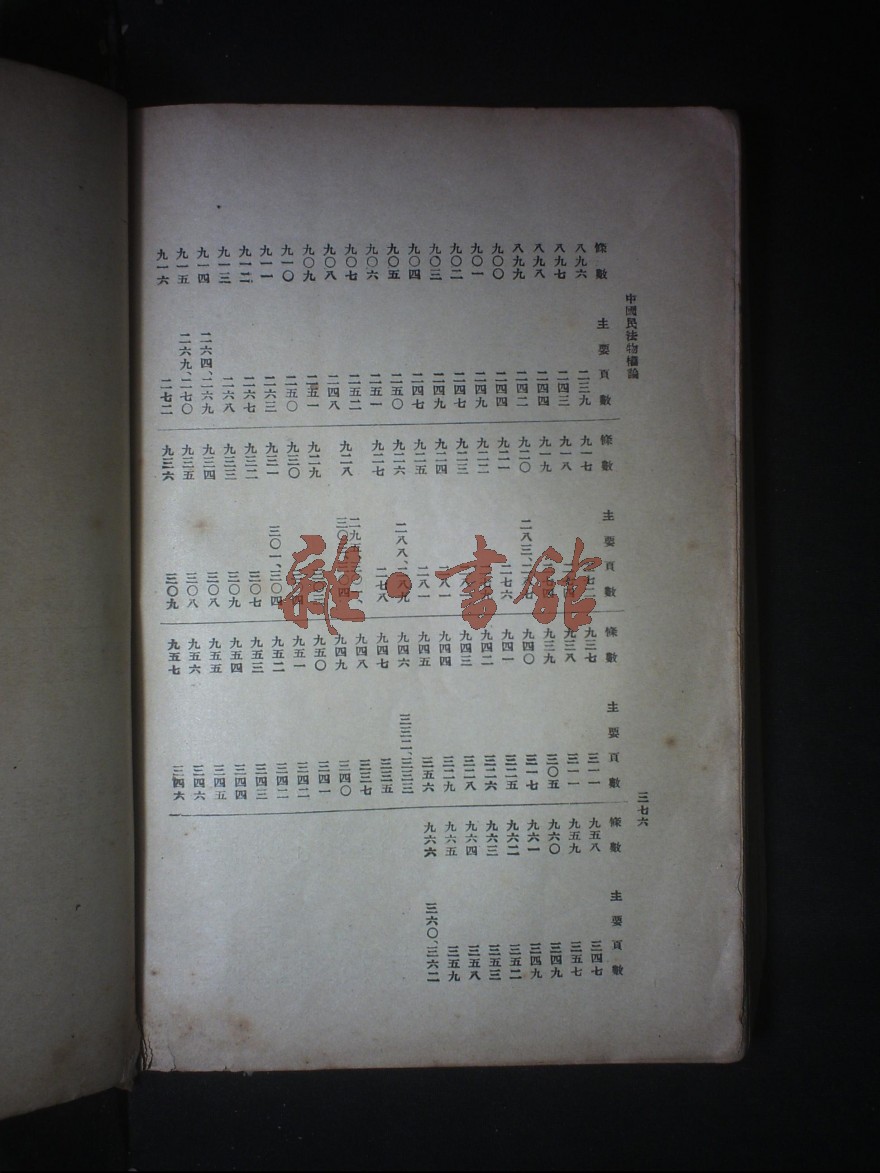 中國民法物權論
三七六
條數 主要頁數
八九六 二三九
八九七 二四三
八九八 二四四
八九九 二四二
九〇〇 二四四
九〇一 二四九
九〇二 二四七
九〇三 二四九
九〇四 二四七
九〇五 二五〇
九〇六 二五一
九〇七 二五二
九〇八 二四八
九〇九 二五一
九一〇 二五〇
九一一 二六三
九一二 二六七
九一三 二六八
九一四 二六四、二六九
九一五 二六九、二七〇
九一六 二七二
條數 主要頁數
九一七
九一八
九一九
九二〇 二八三、
九二一 二七六
九二二
九二三
九二四 二八一
九二五 二八一
九二六 二八八、二八九
九二七 二七八
九二八 二九五、
九二九
九三〇
九三一 三〇一、三〇四
九三二 三〇七
九三三 三〇九
九三四 三〇八
九三五 三〇八
九三六 三〇九
條數 主要頁數
九三七 三一一
九三八 三一一
九三九 三〇五
九四〇 三一七
九四一 三二五
九四二 三二六
九四三 三二八
九四四 三二九
九四五 三五六
九四六 三三二、三三三
九四七 三三五
九四八 三三七
九四九 三四〇
九五〇 三四一
九五一 三四二
九五二 三四二
九五三 三四三
九五四 三四四
九五五 三四五
九五六 三四六
九五七 三四六
條數 主要頁數
九五八 三四七
九五九 三五七
九六〇 三四九
九六一 三四九
九六二 三五二
九六三 三五三
九六四 三五八
九六五 三五九
九六六 三六〇、三六二
雜·書館